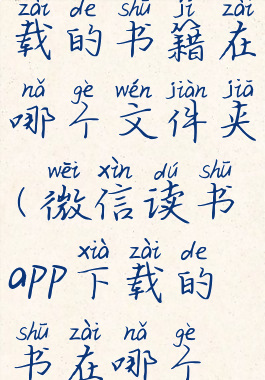 zài de shū jí zài
载的书籍在
nǎ gè wén jiàn jiā
哪个文件夹
wēi xìn dú shū
(微信读书
xià zài de
app下载的
shū zài nǎ gè
书在哪个